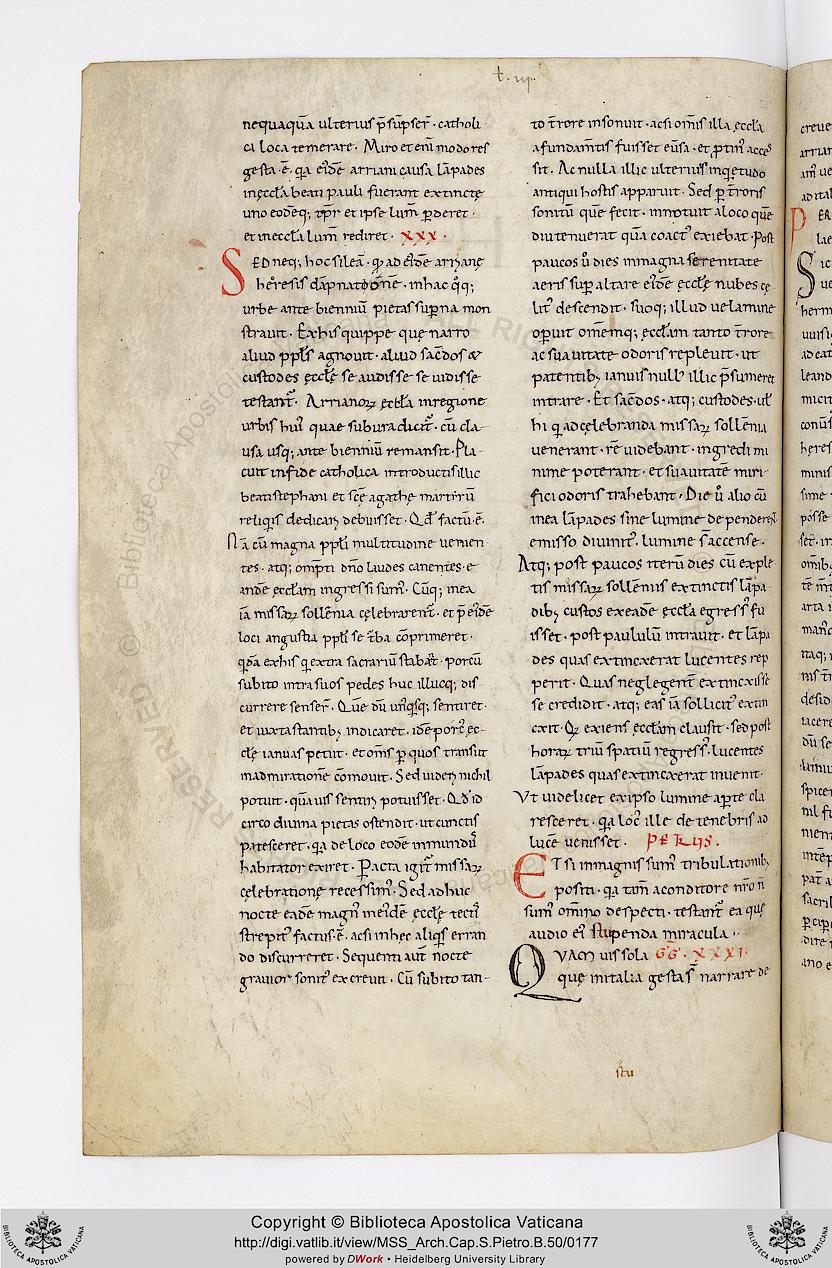 t. iii.
nequaquā ulterius p̄sūpser̄. catholi
ci loca temerare. Miro etenī modo res
gesta.ē. qa eidē arriani causa lāpades
inęccl̄a beati pauli fuerant extinctę
uno eodeq; tp̄r et ipse lum̄ pderet.
et ineccl̄a lum̄ rediret. XXX.
SED neq; hoc sileā. qd ad eidē arrianę
heresis dāpnationē. inhac qq;
urbe ante bienniū pietas supna mon
strauit. Ex his quippe quę narro
aliud ppl̄s agnouit. aliud sac̄dos &
custodes ęccl̄ę se audisse se uidisse
testant̄. Arrianoꝝ eccl̄a inregione
urbis hui' quae subura dicit̄. cū cla
usa usq; ante bienniū remansit. Pla
cuit infide catholica introductis illic
beati stephani et scē agathę martirū
reliqiis dedicari debuisset. Qd factū.ē.
Nā cū magna ppl̄i multitudine uenien
tes. atq; ompti dn̄o laudes canentes. e
andē eccl̄am ingressi sum'. Cūq; inea
iā missaꝝ sollēnia cęlebrarent̄. et p̄ eidē
loci angustia ppl̄i se t̄ba cōprimeret.
qdā ex his qi extra sacrariū stabat. porcū
subito intra suos pedes huc illucq; dis
currere senser̄. Quē dū un'qsq; sentiret.
et iuxta stantib; indicaret. idē porc' ęc
clę ianuas petiit. et oms p quos transiit
inadmirationē cōmouit. Sed uideri nichil
potuit. quā uis sentiri potuisset. Qd id
circo diuina pietas ostendit. ut cunctis
patesceret. qa de loco eodē inmundū
habitator exiret. Pacta igit̄ missaꝝ
cęlebratione recessim'. Sed adhuc
nocte eadē magn' in eidē ęccl̄ę tecti
strepit' factus.ē. acsi inhęc aliqis erran
do discurreret. Sequenti aut̄ nocte
grauior sonit' excreuit. Cū subito tan
to t̄rore insonuit. acsi omīs illa ęccl̄a
afundamtis fuisset eūsa. et ptin' acces
sit. Ac nulla illic ulterius inqietudo
antiqui hostis apparuit. Sed p t̄roris
sonitū quē fecit. innotuit aloco quē
diu tenuerat quā coact' exiebat. Post
paucos ū dies inmagna serenitate
aeris sup altare eidē ęccl̄ę nubes cę
lit' descendit. suoq; illud uelamine
opuit omēmq; ęccl̄am tanto t̄rore
ac suauitate odoris repleuit. ut
patentib; ianuis null' illic p̄sumeret
intrare. Et sac̄dos. atq; custodes. ul'
hi qi adcęlebranda missaꝝ sollēnia
uenerant. rē uidebant. ingredi mi
nime poterant. et suauitatē miri
fici odoris trahebant. Die ū alio cū
inea lāpades sine lumine dependerent
emisso diuinit' lumine s̄ accense.
Atq; post paucos iterū dies cū exple
tis missaꝝ sollēniis extinctis lāpa
dib; custos exeadē eccl̄a egress' fu
isset. post paululū intrauit. et lāpa
des quas extincxerat lucentes rep
perit. Quas neglegent̄ extincxisse
se credidit. atq; eas iā sollicit' extin
cxit. Qi exiens ęccl̄am clausit. sed post
horaꝝ triū spatiū regress'. lucentes
lāpades quas extincxerat inuenit.
Ut uidelicet ex ipso lumine apte cla
resceret. qa loc' ille de tenebris ad
lucē uenisset. PETRUS.
ET si inmagnis sum' tribulationib;
positi. qa tam̄ aconditore nr̄o ñ
sum' omīno despecti. testant̄ ea quę
audio ei' stupenda miracula.
QUAM uis sola GḠ. XXXI.
quę initalia gesta s̄ narrare de
stu
Copyright © Biblioteca Apostolica Vaticana
http://digi.vatlib.it/view/MSS_Arch.Cap.S.Pietro.B.50/0177
powered by DWork • Heidelberg University Library